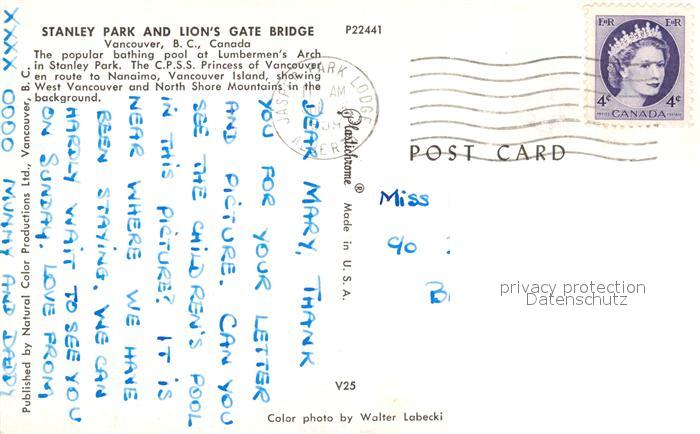 STANLEY PARK AND LION'S GATE BRIDGE
Vancouver, B. C., Canada
The popular bathing pool at Lumbermen's Arch
in Stanley Park. The C.P.S.S. Princess of Vancouver
en route to Nanaimo, Vancouver Island, showing
West Vancouver and North Shore Mountains in the
background.
P22441
JASPER PARK LODGE
AM
ALBERTA
EIIR EIIR
4¢ 4¢
CANADA
POSTES POSTAGE
POST CARD
DEAR MARY, THANK
YOU FOR YOUR LETTER
AND PICTURE. CAN YOU
SEE THE CHILDREN'S POOL
IN THIS PICTURE? IT IS
NEAR WHERE WE HAVE
BEEN STAYING. WE CAN
HARDLY WAIT TO SEE YOU
ON SUNDAY. LOVE FROM
XXXX OOOO MUMMY AND DADDY
Published by Natural Color Productions Ltd., Vancouver, B. C.
Plastichrome ® Made in U. S. A.
Miss
c/o
B
privacy protection
Datenschutz
V25
Color photo by Walter Labecki